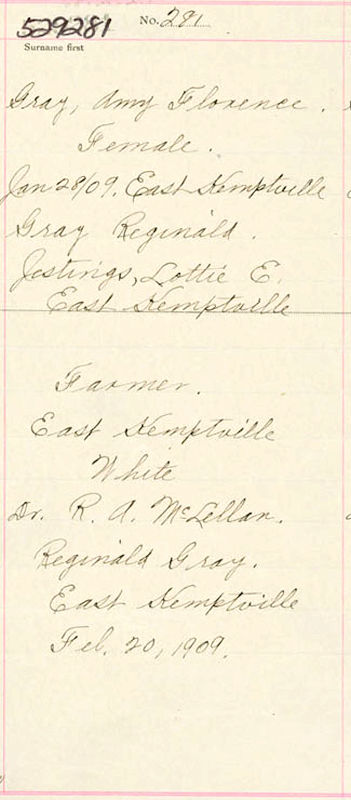 529281
No. 281
Surname first
Gray, Amy Florence.
Female.
Jan 28/09. East Kemptville
Gray Reginald.
Jestings, Lottie E.
East Kemptville
Farmer.
East Kemptville
White
Dr. R. A. McLellan.
Reginald Gray.
East Kemptville
Feb. 20, 1909.